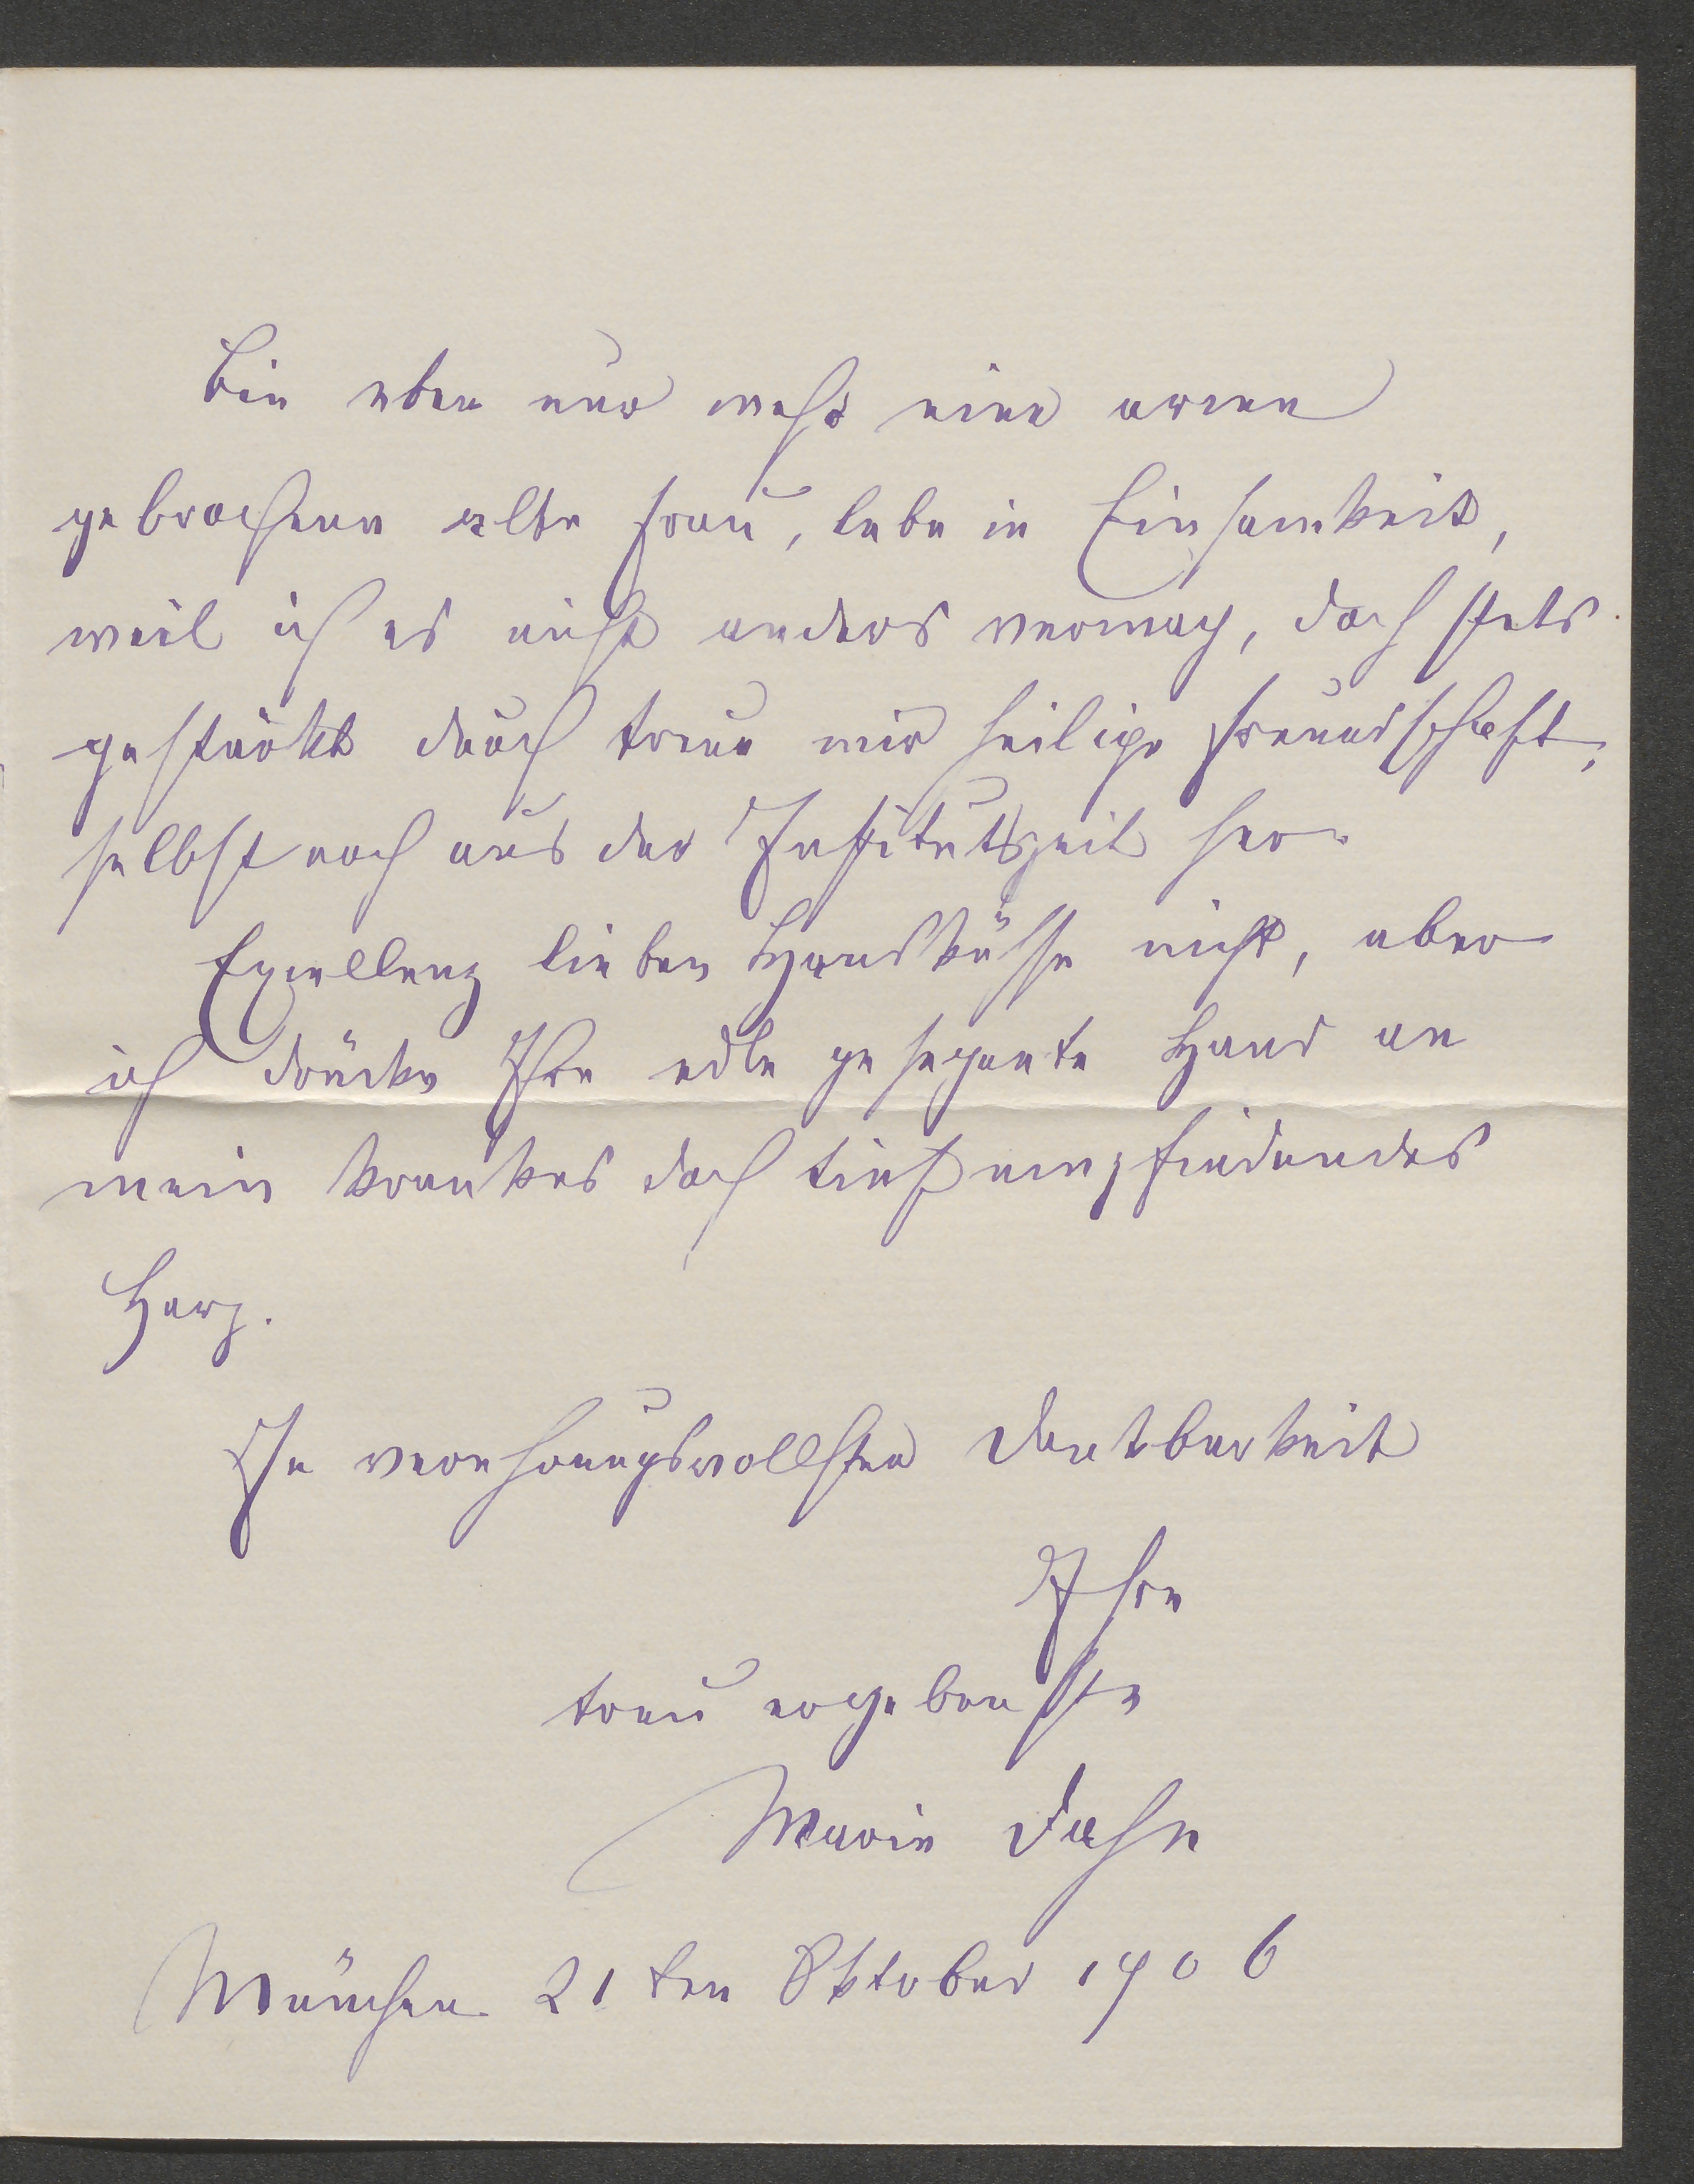 Bin eben nur mehr eine arme
gebrochene alte Frau, lebe in Einsamkeit,
weil ich es nicht anders vermag, doch stets
gestärkt durch treue mir heilige Freundschaft,
selbst noch aus der Institutszeit her.
Exzellenz lieben Handküsse nicht, aber
ich drücke Ihre edle gesegnete Hand an
mein krankes doch tiefempfindendes
Herz.
In verehrungsvollster Dankbarkeit
Ihre
treu ergebenste
Marie Dahn
München 21ten Oktober 1906